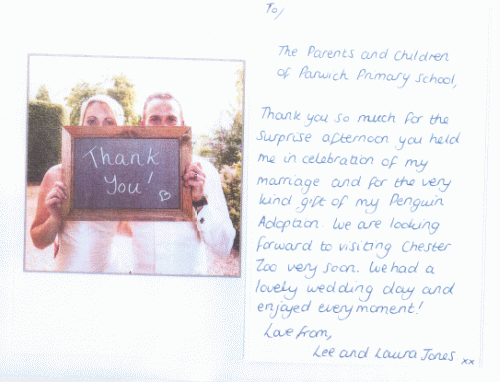 To/
The Parents and Children
of Parwich Primary School,
Thank you so much for the
surprise afternoon you held
me in celebration of my
marriage and for the very
kind gift of my Penguin
Adoption. We are looking
forward to visiting Chester
Zoo very soon. We had a
lovely wedding day and
enjoyed every moment!
Love from,
Lee and Laura Jones xx
Thank
You!